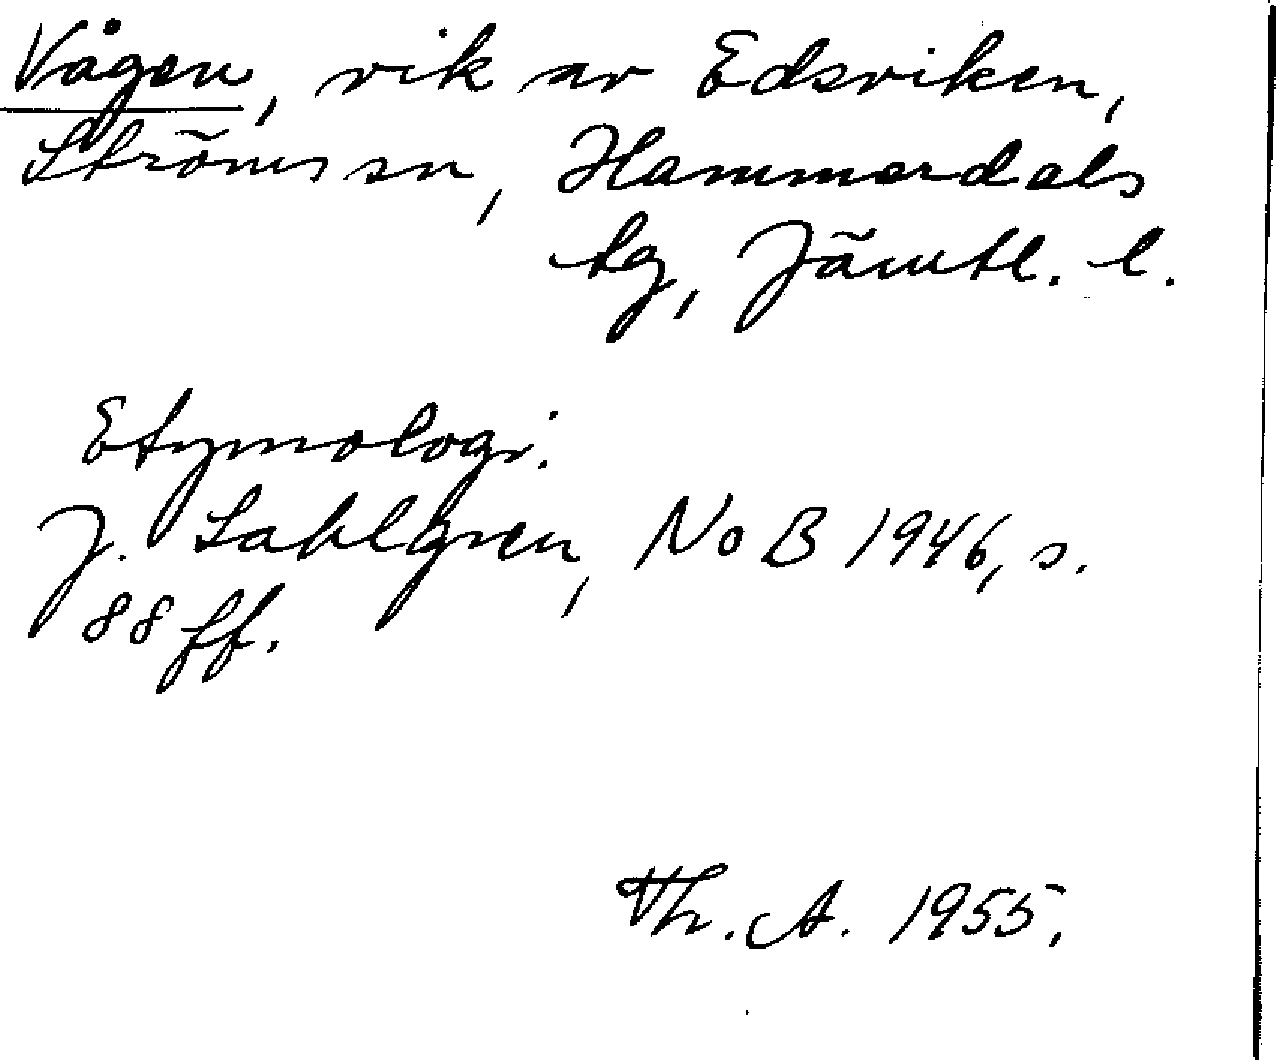 Vågen, vik av Edsviken,
Ströms sn, Hammerdals
tg, Jämtl. l.
Etymologi:
J. Sahlgren, NoB 1946, s.
88 ff.
Th. A. 1955.